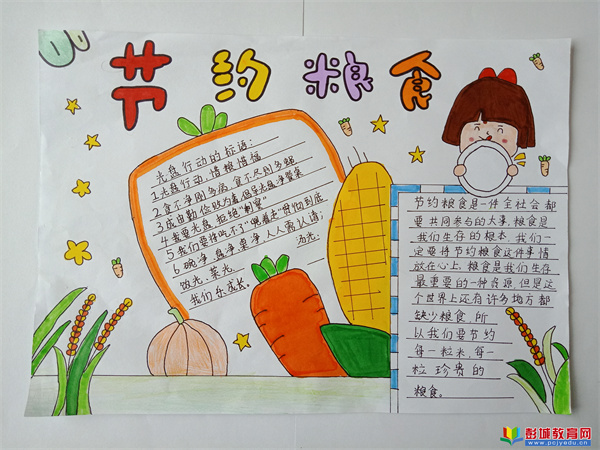 节约粮食
光盘行动的标语：
1.光盘行动，惜粮惜福
2.贪不争则多病，贪不尽则多的
3.成由勤俭败为奢，倡导光盘净餐桌
4.我要光盘，拒绝"剩"宴
5.我们要将"吃不了""兜着走"贯彻到底
6.碗净，盘净，要争，人人需认清；汤光，
饭光，菜光，
我们乐成长。
节约粮食是一件全社会都
要共同参与的大事，粮食是
我们生存的根本，我们一
定要将节约粮食这件事情
放在心上，粮食是我们生存
最重要的一种资源，但是这
个世界上还有许多地方都
缺少粮食，所
以我们要节约
每一粒米，每一
粒珍贵的
粮食。
彭城教育网
www.pcjyedu.cn